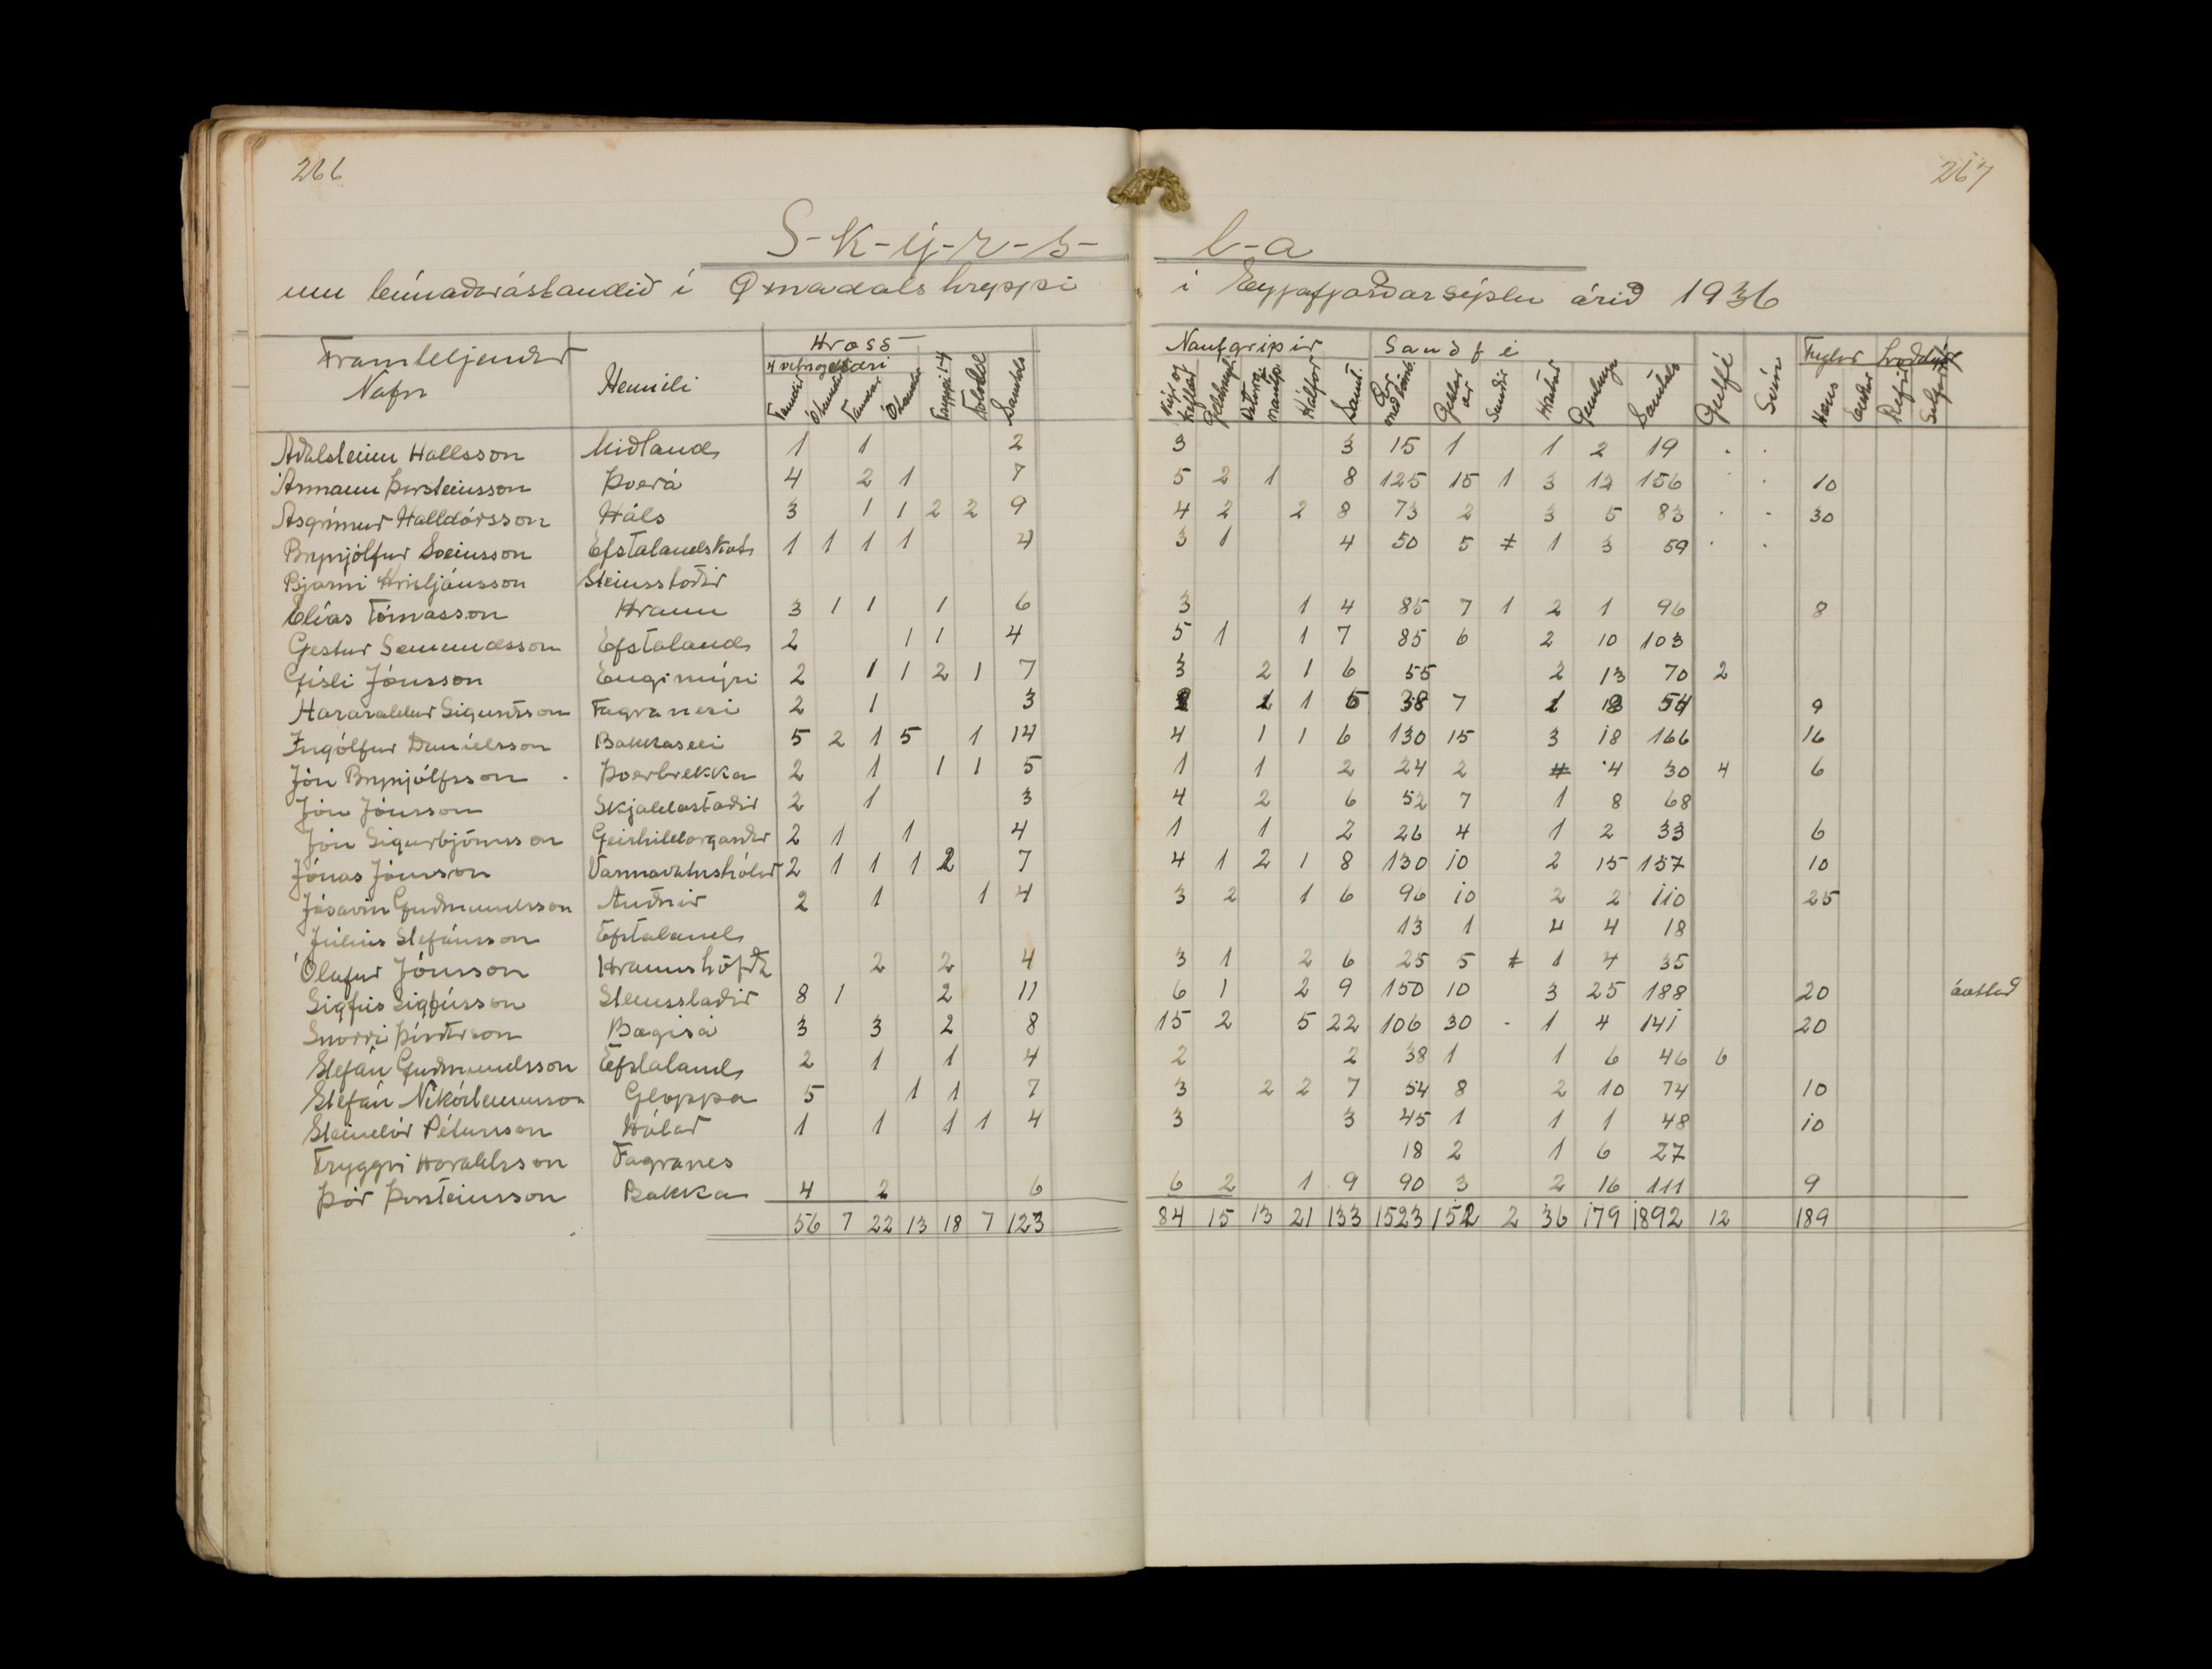 266
267
S-k-ý-r-s- l-a
um búnaðarástandið í Öxnadalshreppi í Eyjafjarðarsýslu árið 1936
Framteljendur Hross Nautgripir Sauðfé Geitfé Svín Fuglar Loðdýr
Nafn Heimili 4 vetra og eldri Tryppi 1-4 Folöld Samtals Kýr og kefldar Geldneyti Veturg. nautp. Kálfar Samt. Ær með lömb. Geldar ær Sauðir Hrútar Gemlingar Samtals Hæns Endur Refir
Tamdir Ótamdir Tamdar Ótamdar
Aðalsteinn Hallsson Miðland 1 1 2 3 3 15 1 1 2 19 . .
Ármann Þorsteinsson Þverá 4 2 1 7 5 2 1 8 125 15 1 3 12 156 . . 10
Ásgrímur Halldórsson Háls 3 1 1 2 2 9 4 2 2 8 73 2 3 5 83 . - 30
Brynjólfur Sveinsson Efstalandskot 1 1 1 1 4 3 1 4 50 5 1 3 59 . .
Bjarni Kristjánsson Steinsstaðir
Elías Tómasson Hraun 3 1 1 1 6 3 1 4 85 7 1 2 1 96 8
Gestur Sæmundsson Efstaland 2 1 1 4 5 1 1 7 85 6 2 10 103
Gísli Jónsson Engimýri 2 1 1 2 1 7 3 2 1 6 55 2 13 70 2
Hararaldur Sigurðsson Fagranesi 2 1 3 1 1 5 38 7 1 8 54 9
Ingólfur Daníelsson Bakkaseli 5 2 1 5 1 14 4 1 1 6 130 15 3 18 166 16
Jón Brynjólfsson . Þverbrekka 2 1 1 1 5 1 1 2 24 2 4 30 4 6
Jón Jónsson Skjaldastaðir 2 1 3 4 2 6 52 7 1 8 68
Jón Sigurbjörnsson Geirhildargarðar 2 1 1 4 1 1 2 26 4 1 2 33 6
Jónas Jónsson Varmavatnshólar 2 1 1 1 2 7 4 1 2 1 8 130 10 2 15 157 10
Jósavin Guðmundsson Auðnir 2 1 1 4 3 2 1 6 96 10 2 2 110 25
Júlíus Stefánsson Efstaland 13 1 4 18
Ólafur Jónsson Hraunshöfða 2 2 4 3 1 2 6 25 5 1 4 35
Sigfús Sigfússon Steinsstaðir 8 1 2 11 6 1 2 9 150 10 3 25 188 20 áætlað
Snorri Þórðrson Bægisá 3 3 2 8 15 2 5 22 106 30 - 1 4 141 20
Stefán Guðmundsson Efstaland 2 1 1 4 2 2 38 1 1 6 46 6
Stefán Nikódemusson Gloppa 5 1 1 7 3 2 2 7 54 8 2 10 74 10
Steindór Pétursson Hólar 1 1 1 1 4 3 3 45 1 1 1 48 10
Tryggvi Haraldsson Fagranes 18 2 1 6 27
Þór Þorsteinsson Bakka 4 2 6 6 2 1 9 90 3 2 16 111 9
56 7 22 13 18 7 123 84 15 13 21 133 1523 152 2 36 179 1892 12 189